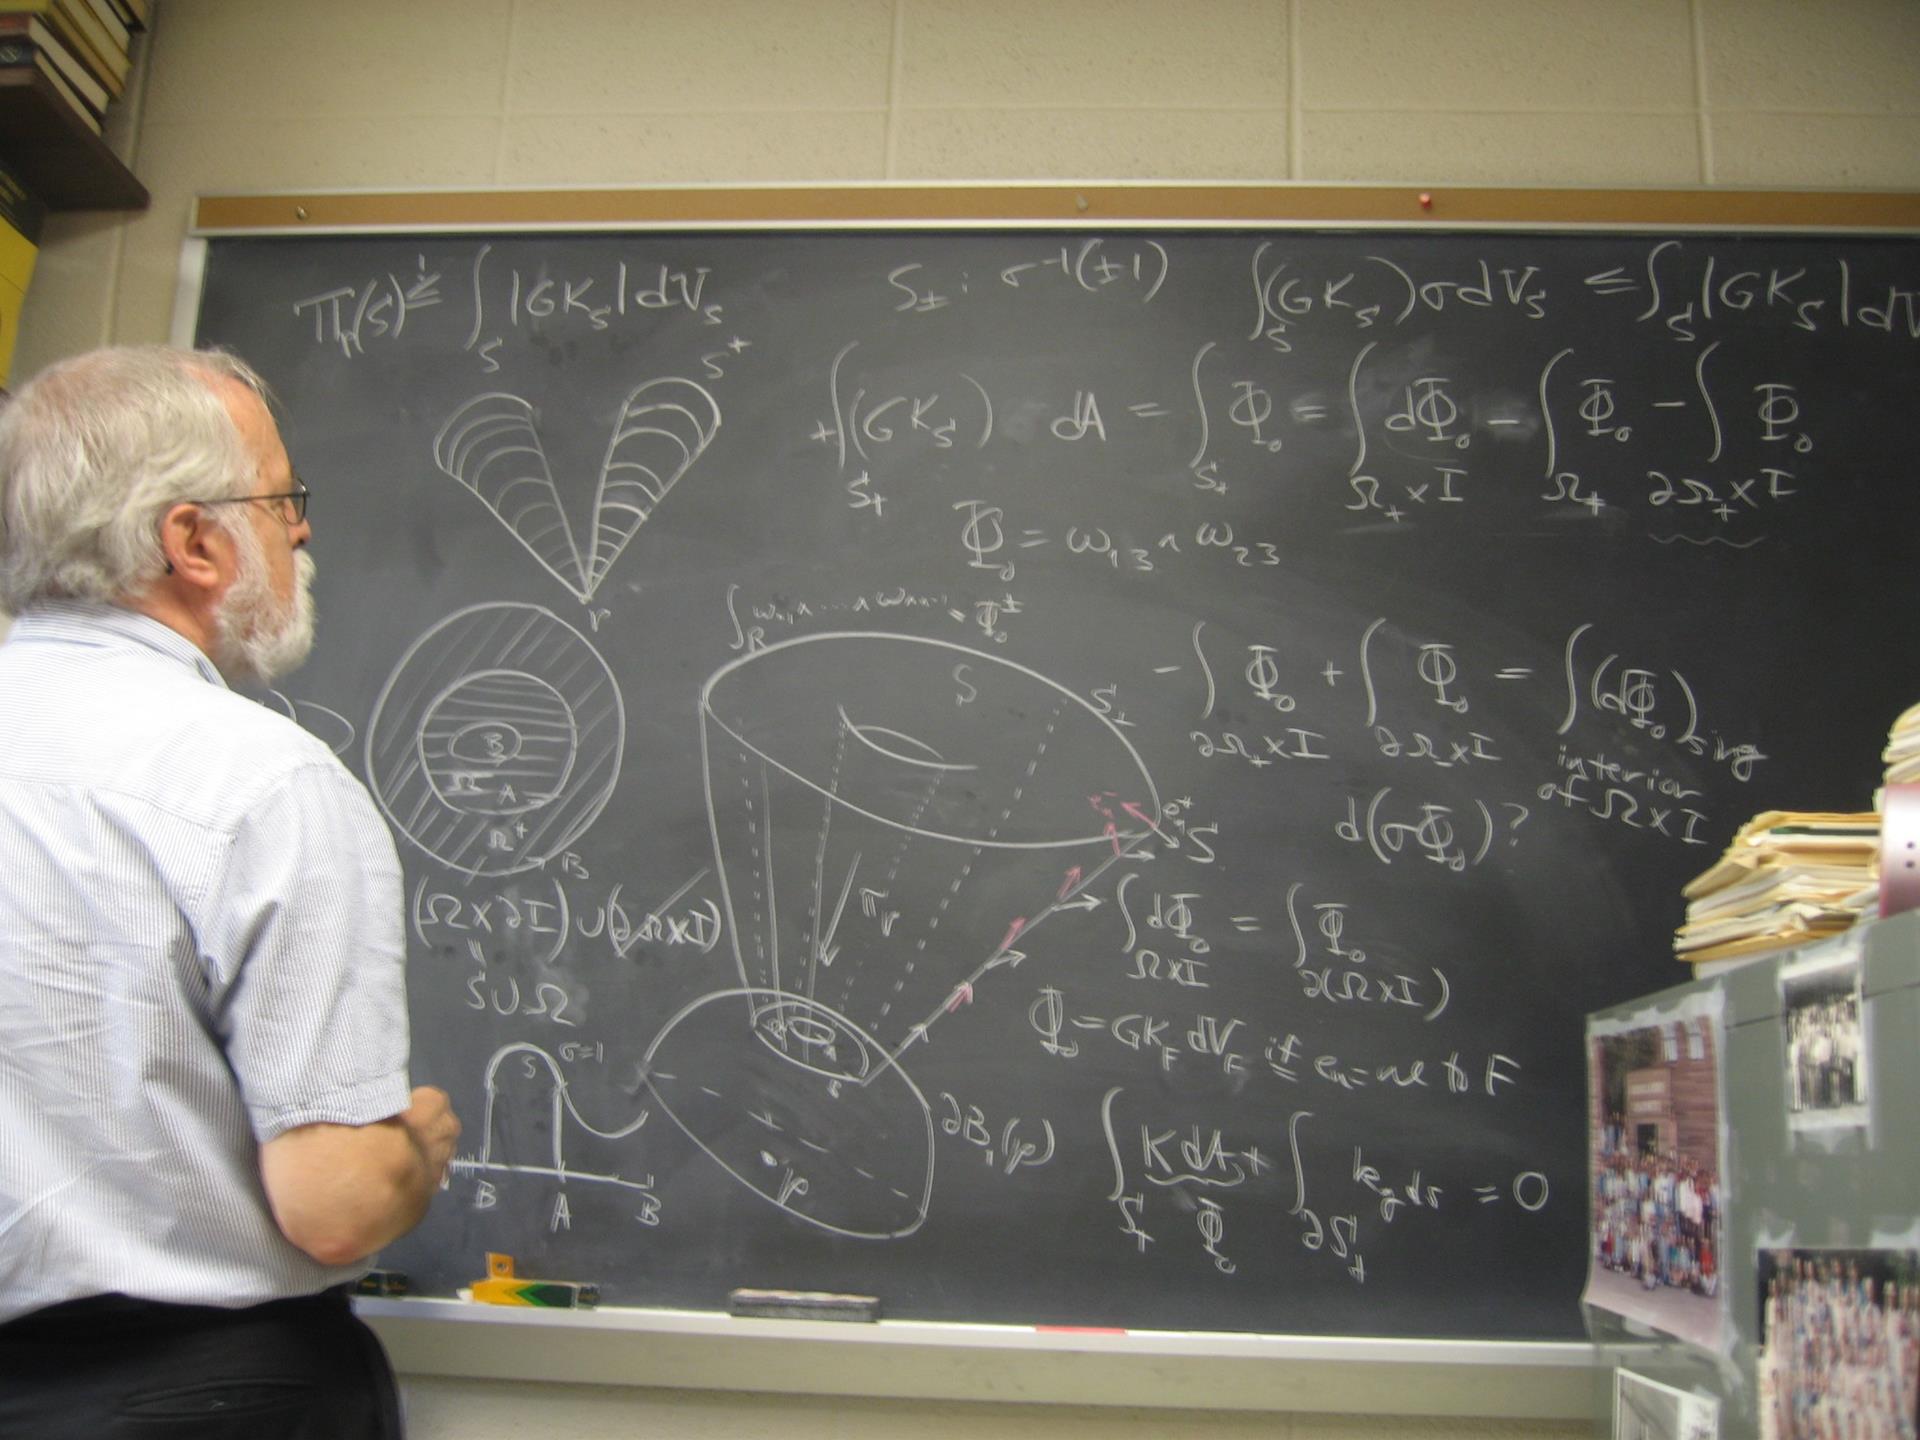 Π_p(S) ≤ ∫_S |GK_S| dV_S
S_± : σ^{-1}(±1)
∫_S (GK_S) σ dV_S ≤ ∫_S |GK_S| dV
S*
+∫_{S_+} (GK_S) dA = ∫_{S_+} Φ_0 = ∫_{Ω_+ × I} dΦ_0 - ∫_{Ω_+} Φ_0 - ∫_{∂Ω_+ × I} Φ_0
Φ_0 = ω_{13} ∧ ω_{23}
p
S
S_+
-∫_{∂Ω_+ × I} Φ_0 + ∫_{∂Ω_- × I} Φ_0 = ∫ (dΦ_0)_{sing}
interior
of Ω × I
B
Ω
A
Ω+
B
S
d(σΦ_0)?
(Ω × ∂I) ∪ (∂Ω × I)
S ∪ Ω
π_p
∫_{Ω × I} dΦ_0 = ∫_{∂(Ω × I)} Φ_0
Φ_0 = GK_F dV_F if e_n = ne to F
S σ=1
B A B
p
∂B_1(p)
∫_{S_+} K dA + ∫_{∂S_+} k_g ds = 0
Φ_0